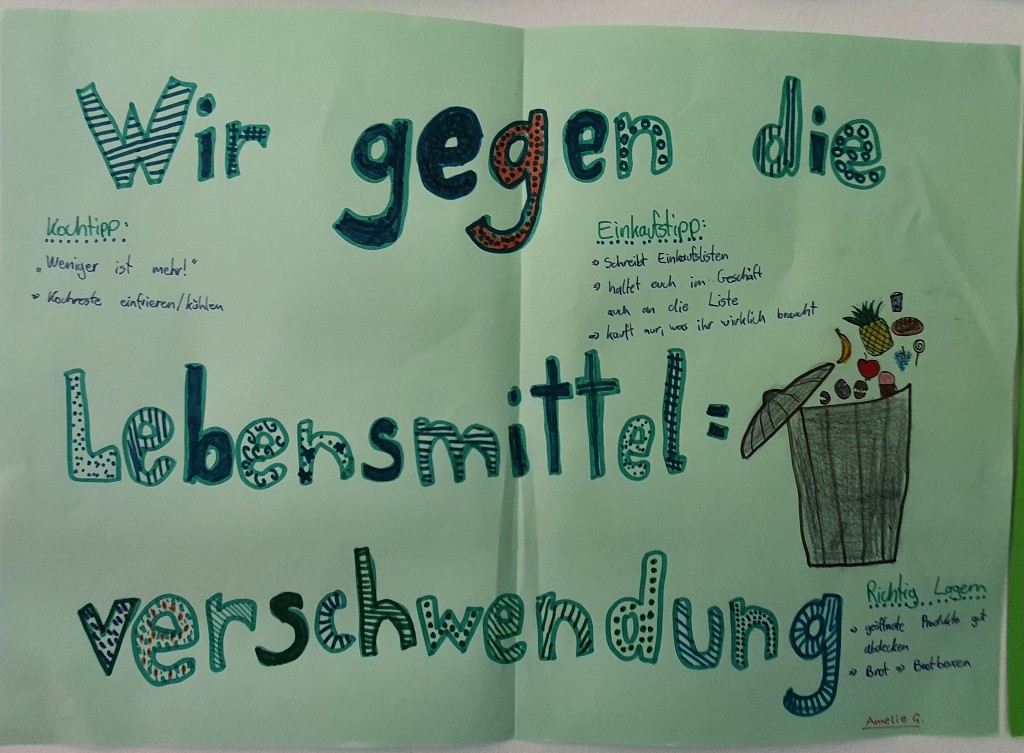 Wir gegen die
Kochtipp:
"Weniger ist mehr!"
→ Kochreste einfrieren/kühlen
Einkaufstipp:
→ Schreibt Einkaufslisten
→ haltet euch im Geschäft
auch an die Liste
→ kauft nur, was ihr wirklich braucht
Lebensmittel=
verschwendung
Richtig Lagern
→ geöffnete Produkte gut
abdecken
→ Brot → Brotboxen
Amelie G.